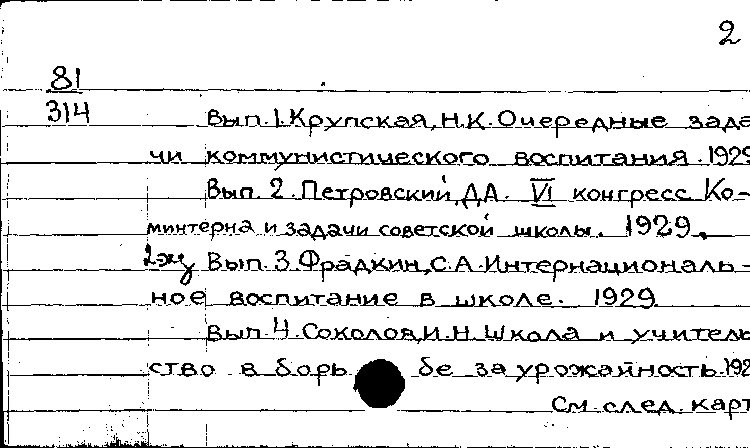 2
81
314
Вып. 1. Крупская, Н.К. Очередные зада
чи коммунистического воспитания. 1929
Вып. 2. Петровский, Д.А. VI конгресс Ко-
минтерна и задачи советской школы. 1929.
2экз Вып. 3. Фрадкин, С.А. Интернациональ-
ное воспитание в школе. 1929
Вып. 4. Соколов, И.Н. Школа и учитель
ство в борь бе за урожайность. 192
См. след. карт